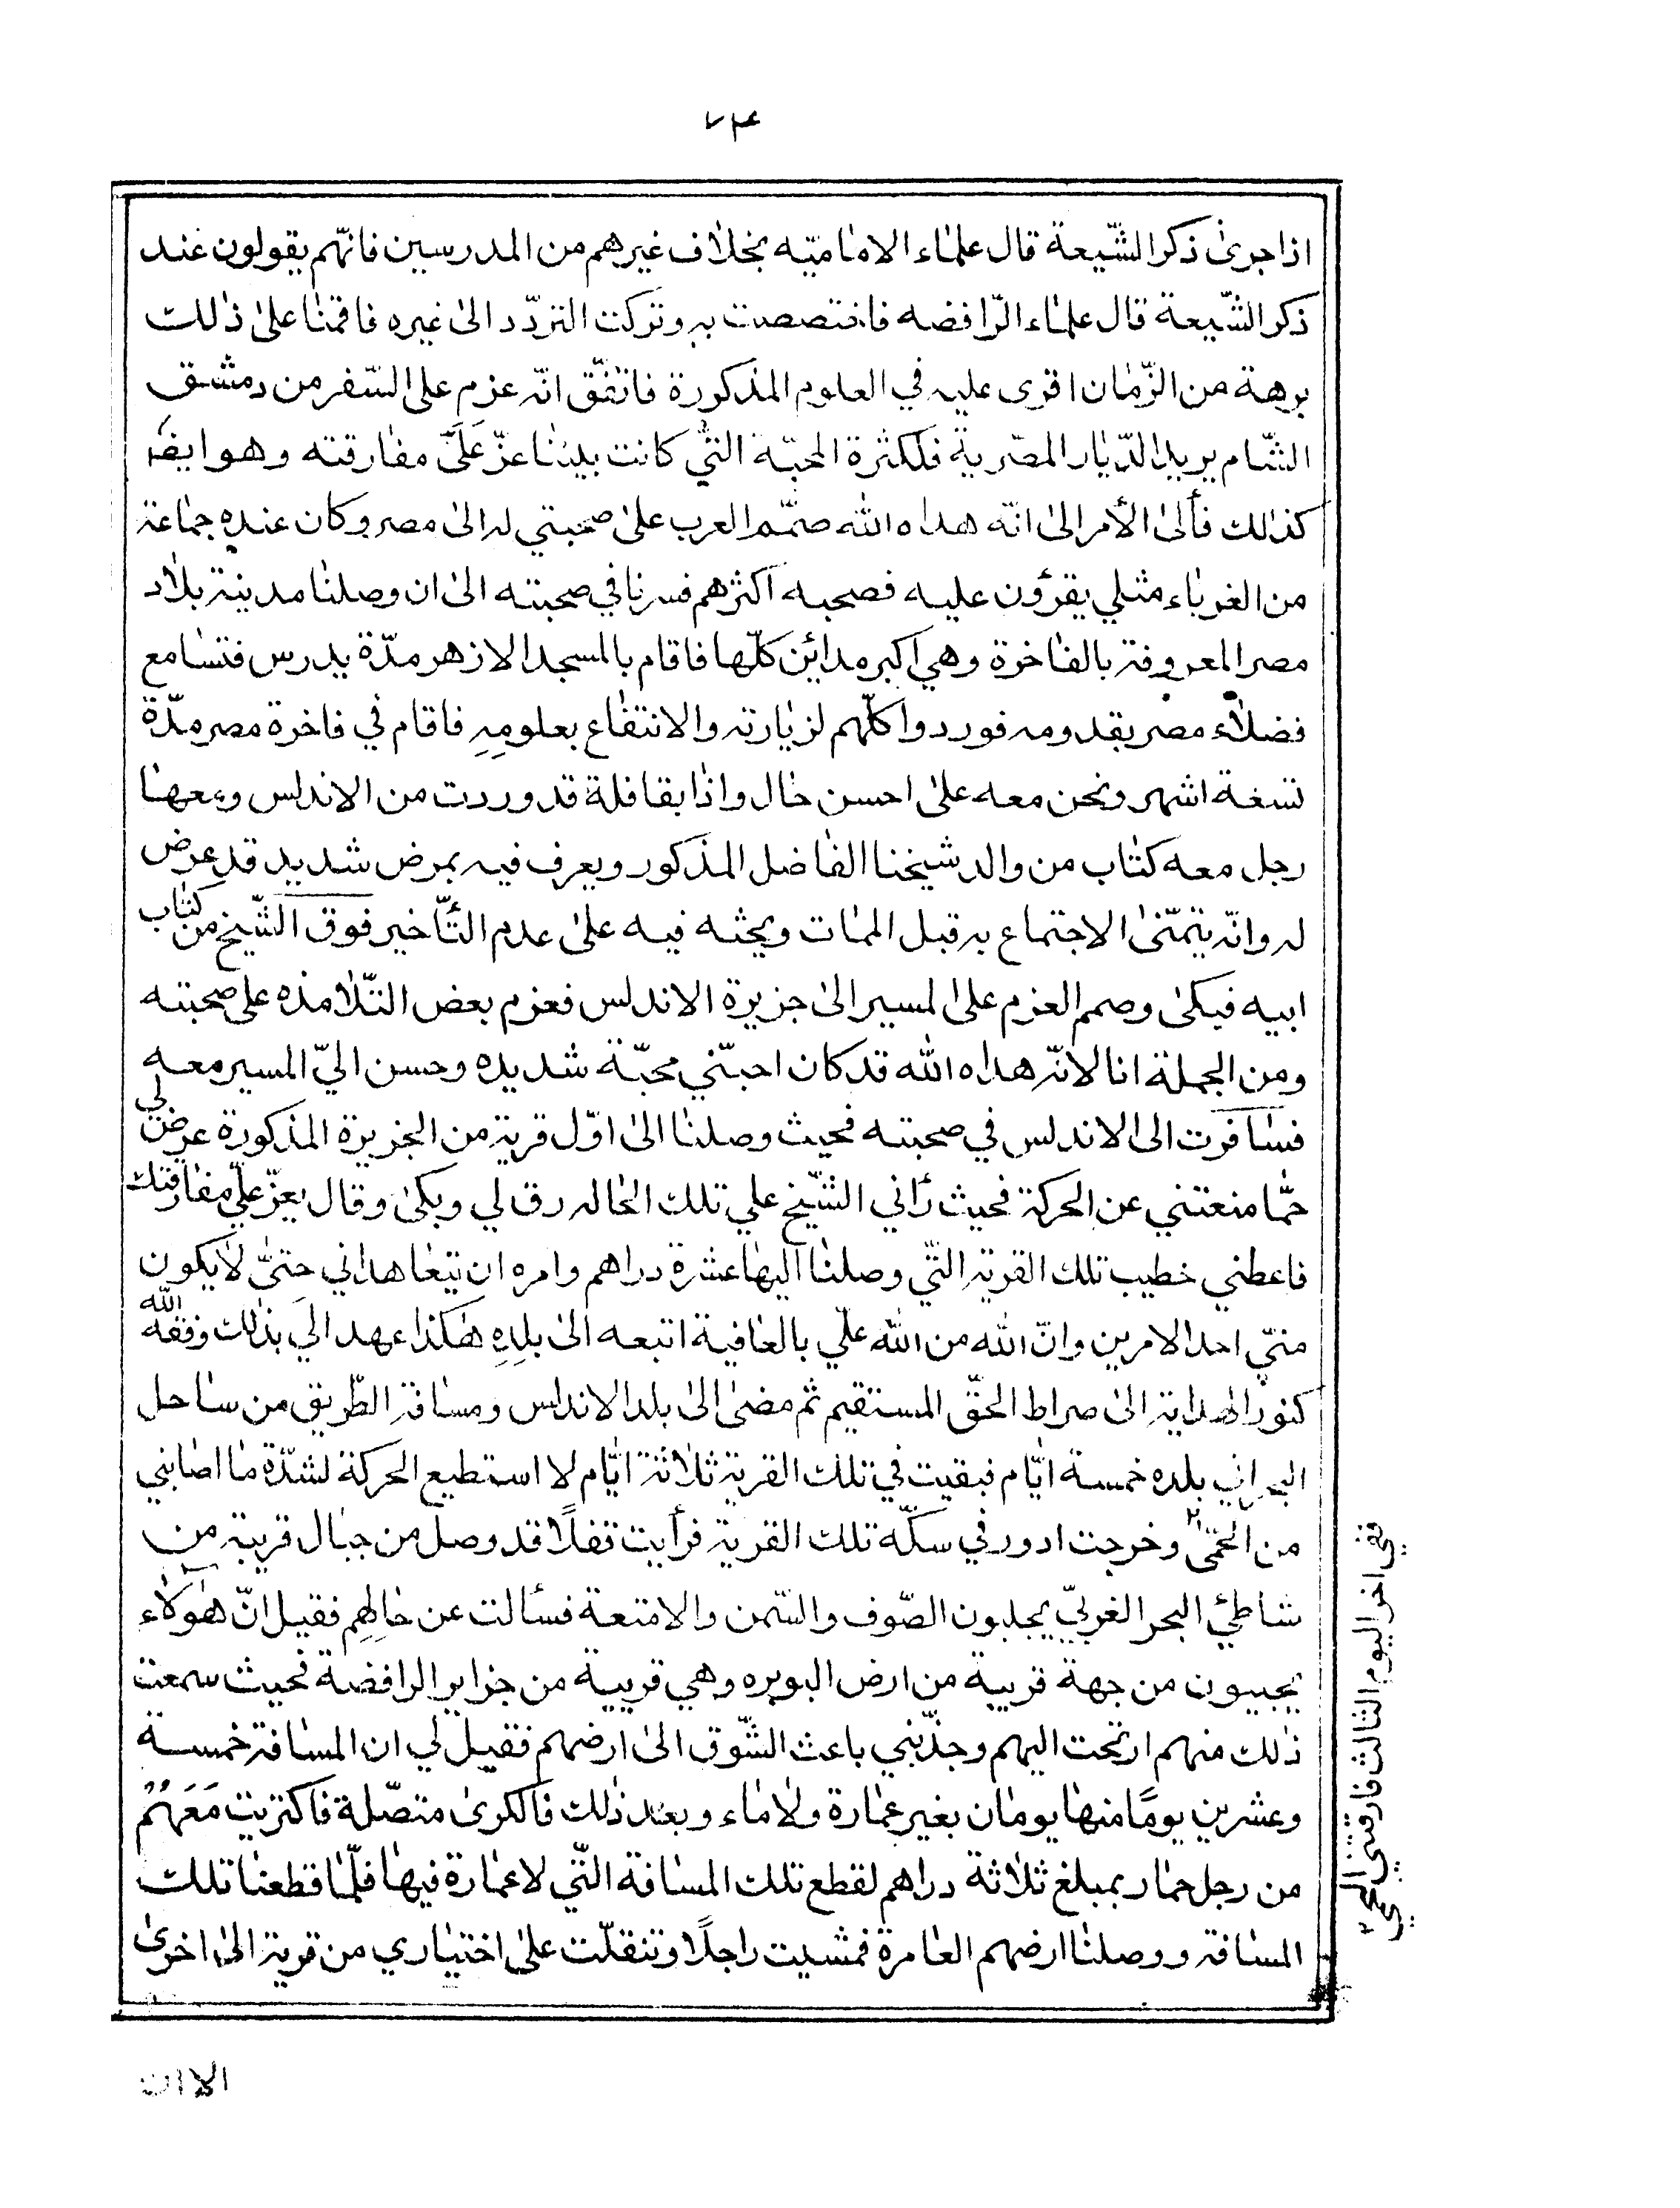 ٧٣
اذا جرىٰ ذكر الشّيعة قال علمٰاء الامٰاميّه بخلاف غيرهم من المدرسين فانّهم يقولون عند
ذكر الشّيعة قال علمٰاء الرّافضه فاختصصت به وتركت التردّد الىٰ غيره فاقمنٰا علىٰ ذٰلك
برهة من الزّمٰان اقرى عليه في العلوم المذكورة فاتفّق انّه عزم على السّفر من دمشق
الشّام يريد الدّيٰار المصريّة فلكثرة المحبّة التّي كانت بيننٰا عزّ عَلَيَّ مفٰارقته وهو ايضًا
كذٰلك فأٰلىٰ الأمر الىٰ انّه هداه الله صمّم العرب علىٰ صحبتي له الىٰ مصر وكان عنده جمٰاعة
من الغربٰاء مثلي يقرؤن عليه فصحبه اكثرهم فسرنا في صحبته الىٰ ان وصلنٰا مدينة بلاد
مصر المعروفة بالفٰاخرة وهي اكبر مدائن كلّها فاقام بالمسجد الازهر مدّة يدرس فتسٰامع
فضلاء مصر بقدومه فوردوا كلّهم لزيٰارته والانتفٰاع بعلومِهِ فاقام في فاخرة مصر مدّة
تسعة اشهر ونحن معه علىٰ احسن حٰال واذٰا بقافلة قد وردت من الاندلس ومعهٰا
رجل معه كتٰاب من والد شيخنا الفٰاضل المذكور ويعرف فيه بمرض شديد قد عرض
له وانّه يتمنّىٰ الاجتماع به قبل الممٰات ويحثه فيه علىٰ عدم التّأخير فوق الشّيخ من كتٰاب
ابيه فبكىٰ وصمم العزم علىٰ المسير الىٰ جزيرة الاندلس فعزم بعض التّلامذه على صحبته
ومن الجملة انا لانّه هداه الله قد كان احبّني محبّة شديده وحسن اليّ المسير معه
فسٰافرت الىٰ الاندلس في صحبته فحيث وصلنٰا الىٰ اوّل قرية من الجزيرة المذكورة عرض لي
حمّٰا منعتني عن الحركة فحيث رٰاني الشّيخ علي تلك الحٰاله رق لي وبكىٰ وقال يعزّ عليّ مفٰارقتك
فاعطني خطيب تلك القرية التّي وصلنٰا اليهٰا عشرة دراهم وامره ان يتعٰاهداني حتىّٰ لايكون
منيّ احد الامرين وانّ الله من الله عليّ بالعٰافية اتبعه الىٰ بلدِهِ هٰكذا عهد اليَ بذٰلك وفقه الله
كنور الهداية الىٰ صراط الحقّ المستقيم ثم مضىٰ الىٰ بلد الاندلس ومسٰافة الطّريق من سٰاحل
البحر اني بلده خمسة ايّٰام فبقيت في تلك القرية ثلاثة ايّٰام لا استطيع الحركة لشدّة مٰا اصٰابني
من الحمّىٰ وخرجت ادور في سكّة تلك القرية فرأيت قفلًا قد وصل من جبٰال قريبة من
شاطئ البحر الغربيّ يجلبون الصّوف والسّمن والامتعة فسألت عن حٰالِهِم فقيل انّ هٰؤلاء
يجيبون من جهة قريبة من ارض البوبره وهي قريبة من جزاير الرافضة فحيث سمعت
ذٰلك منهم ارتحت اليهم وجذبني باعث الشّوق الىٰ ارضهم فقيل لي ان المسٰافة خمسة
وعشرين يومًا منهٰا يومٰان بغير عمٰارة ولامٰاء وبعد ذٰلك فالكرىٰ متصّلة فاكتريت مَعَهُم
من رجل حمٰار بمبلغ ثلاثة دراهم لقطع تلك المسٰافة التّي لاعمٰارة فيهٰا فلمّٰا قطعنٰا تلك
المسٰافة ووصلنٰا ارضهم العٰامرة فمشيت راجلًا وتنقلّت علىٰ اختيٰاري من قرية الىٰ اخرىٰ
ففي اخر اليوم الثالث فارقتني الحمي